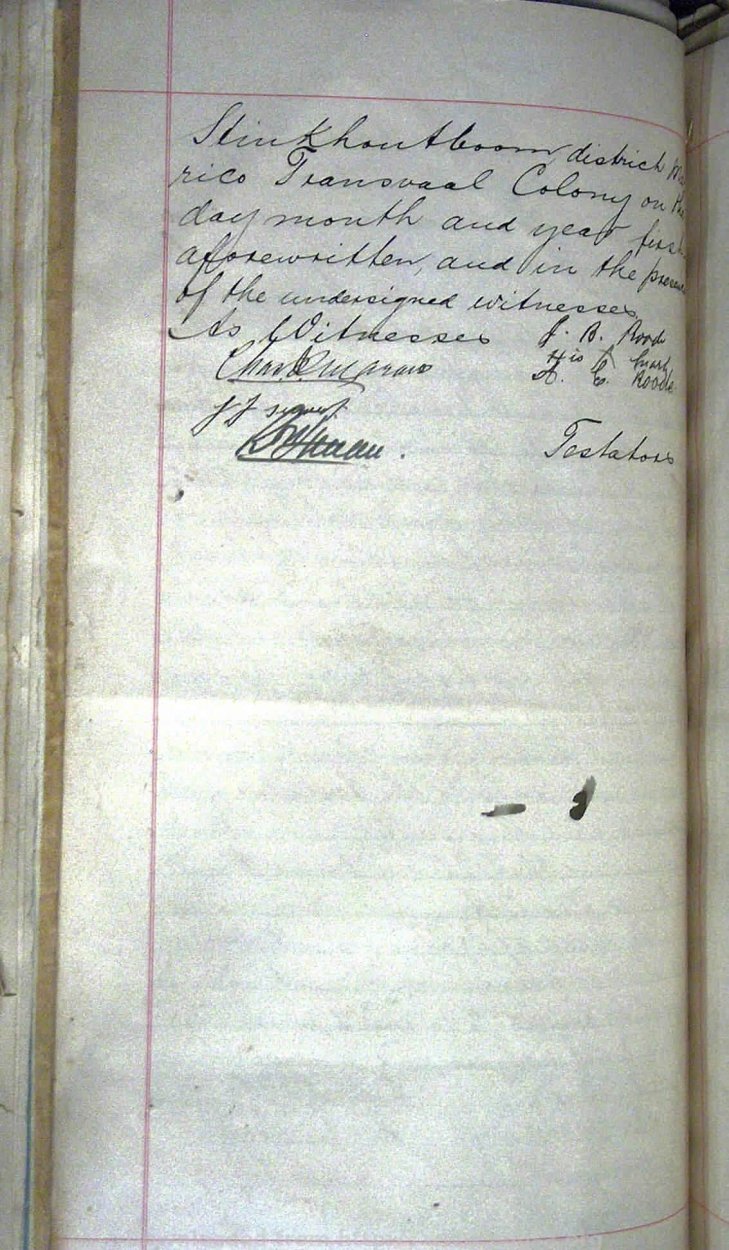 Stinkhoutboom, district Ma
rico Transvaal Colony on the
day month and year first
aforewritten, and in the presence
of the undersigned witnesses.
As Witnesses J. B. Roode
Chas Marais His X mark
A. C. Roode
Testators